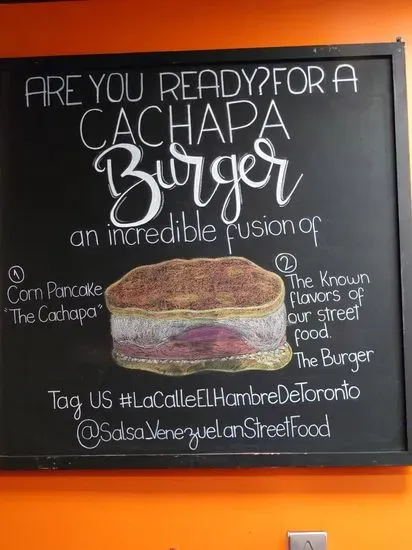 ARE YOU READY? FOR A
CACHAPA
Burger
an incredible fusion of
①
Corn Pancake
"The Cachapa"
②
The Known
flavors of
our street
food.
The Burger
Tag US #LaCalleELHambreDeToronto
@Salsa_VenezuelanStreetFood